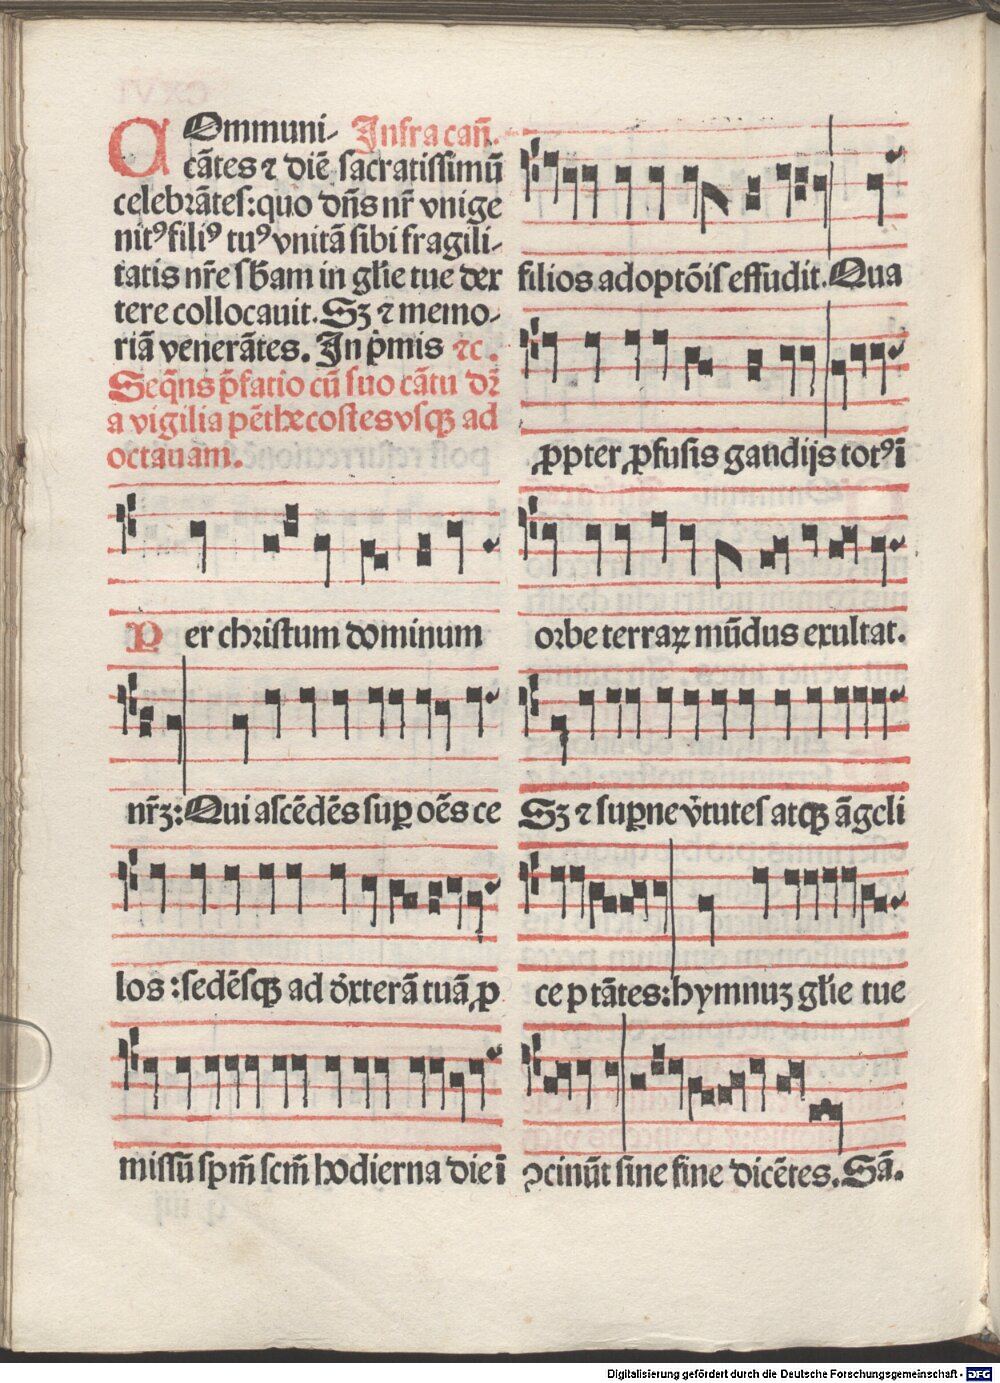 COmmuni⸗ Infra cañ.
cãtes ⁊ diē sacratissimū
celebrãtes: quo dñs nr̄ vnige
nitꝰ filiꝰ tuꝰ vnitã sibi fragili⸗
tatis nr̄e sb̄am in gl̄ie tue dex
tere collocauit. Sꝫ ⁊ memo⸗
riã venerãtes. In p̄mis ⁊c.
Seq̄ns p̄fatio cū suo cãtu dr̄
a vigilia pēthecostes vsqꝫ ad
octauam.
Per christum dominum
nr̄ꝫ: Qui ascēdēs suꝑ oēs ce
los: sedēsqꝫ ad dexterã tuã ꝓ
missū sp̄m̄ scm̄ hodierna die ī
filios adoptõis effudit. Qua
ꝓpter ꝓfusis gandijs totꝰ ī
orbe terraꝝ mūdus exultat.
Sꝫ ⁊ suꝑne v̄tutes atqꝫ ãgeli
ce ptãtes: hymnuꝫ gl̄ie tue
ꝯcinūt sine fine dicētes. Sã.
Digitalisierung gefördert durch die Deutsche Forschungsgemeinschaft - DFG